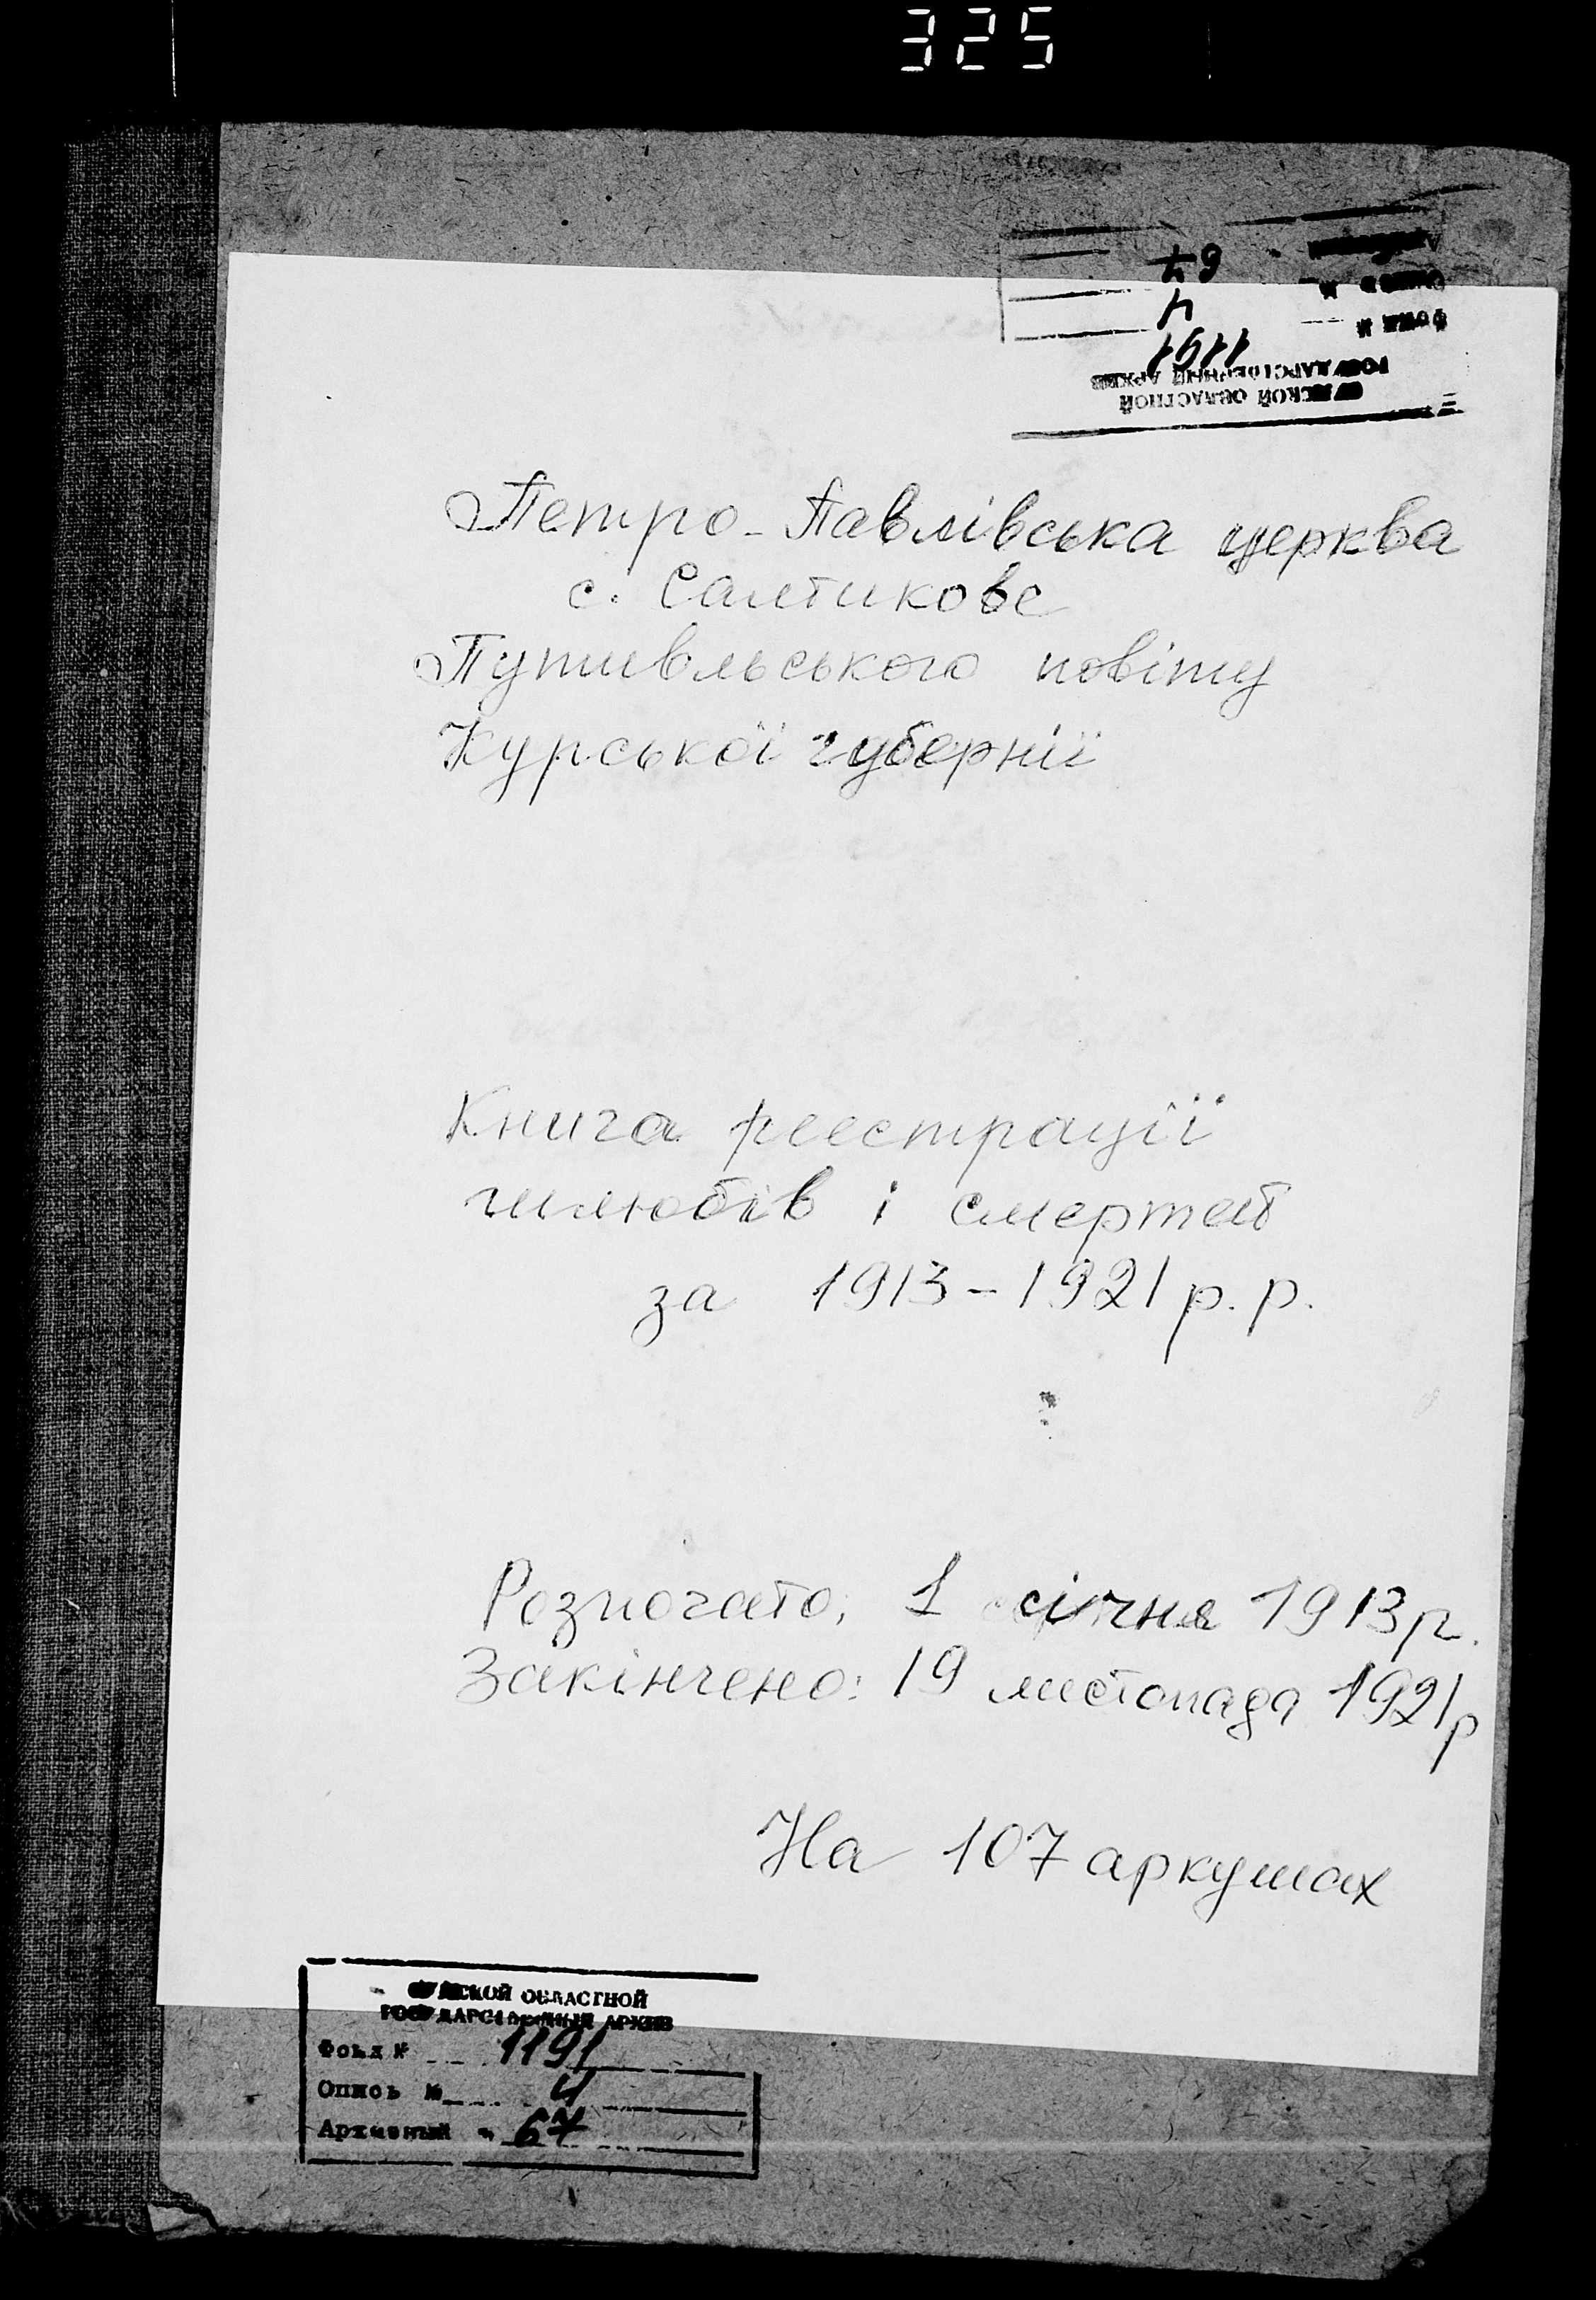 325
Петро-Павлівська церква
с. Салтикове
Путивльського повіту
Курської губернії
Книга реєстрації
шлюбів і смертей
за 1913-1921 р.р.
Розпочато: 1 січня 1913 р.
Закінчено: 19 листопада 1921 р
На 107 аркушах
СУМСКОЙ ОБЛАСТНОЙ
ГОСУДАРСТВЕННЫЙ АРХИВ
Фонд № 1191
Опись № 4
Архивный 67
СУМСКОЙ ОБЛАСТНОЙ
ГОСУДАРСТВЕННЫЙ АРХИВ
Фонд № 1191
Опись № 4
67